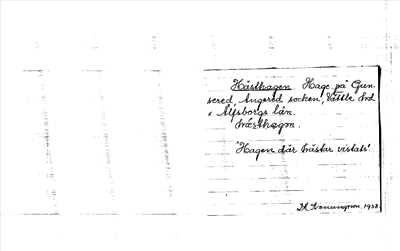 Hästhagen. Hage på Gun-
sered, Angered socken, Vättle hd
i Älfsborgs län.
hästhagen.
"Hagen där hästar vistats".
1938.